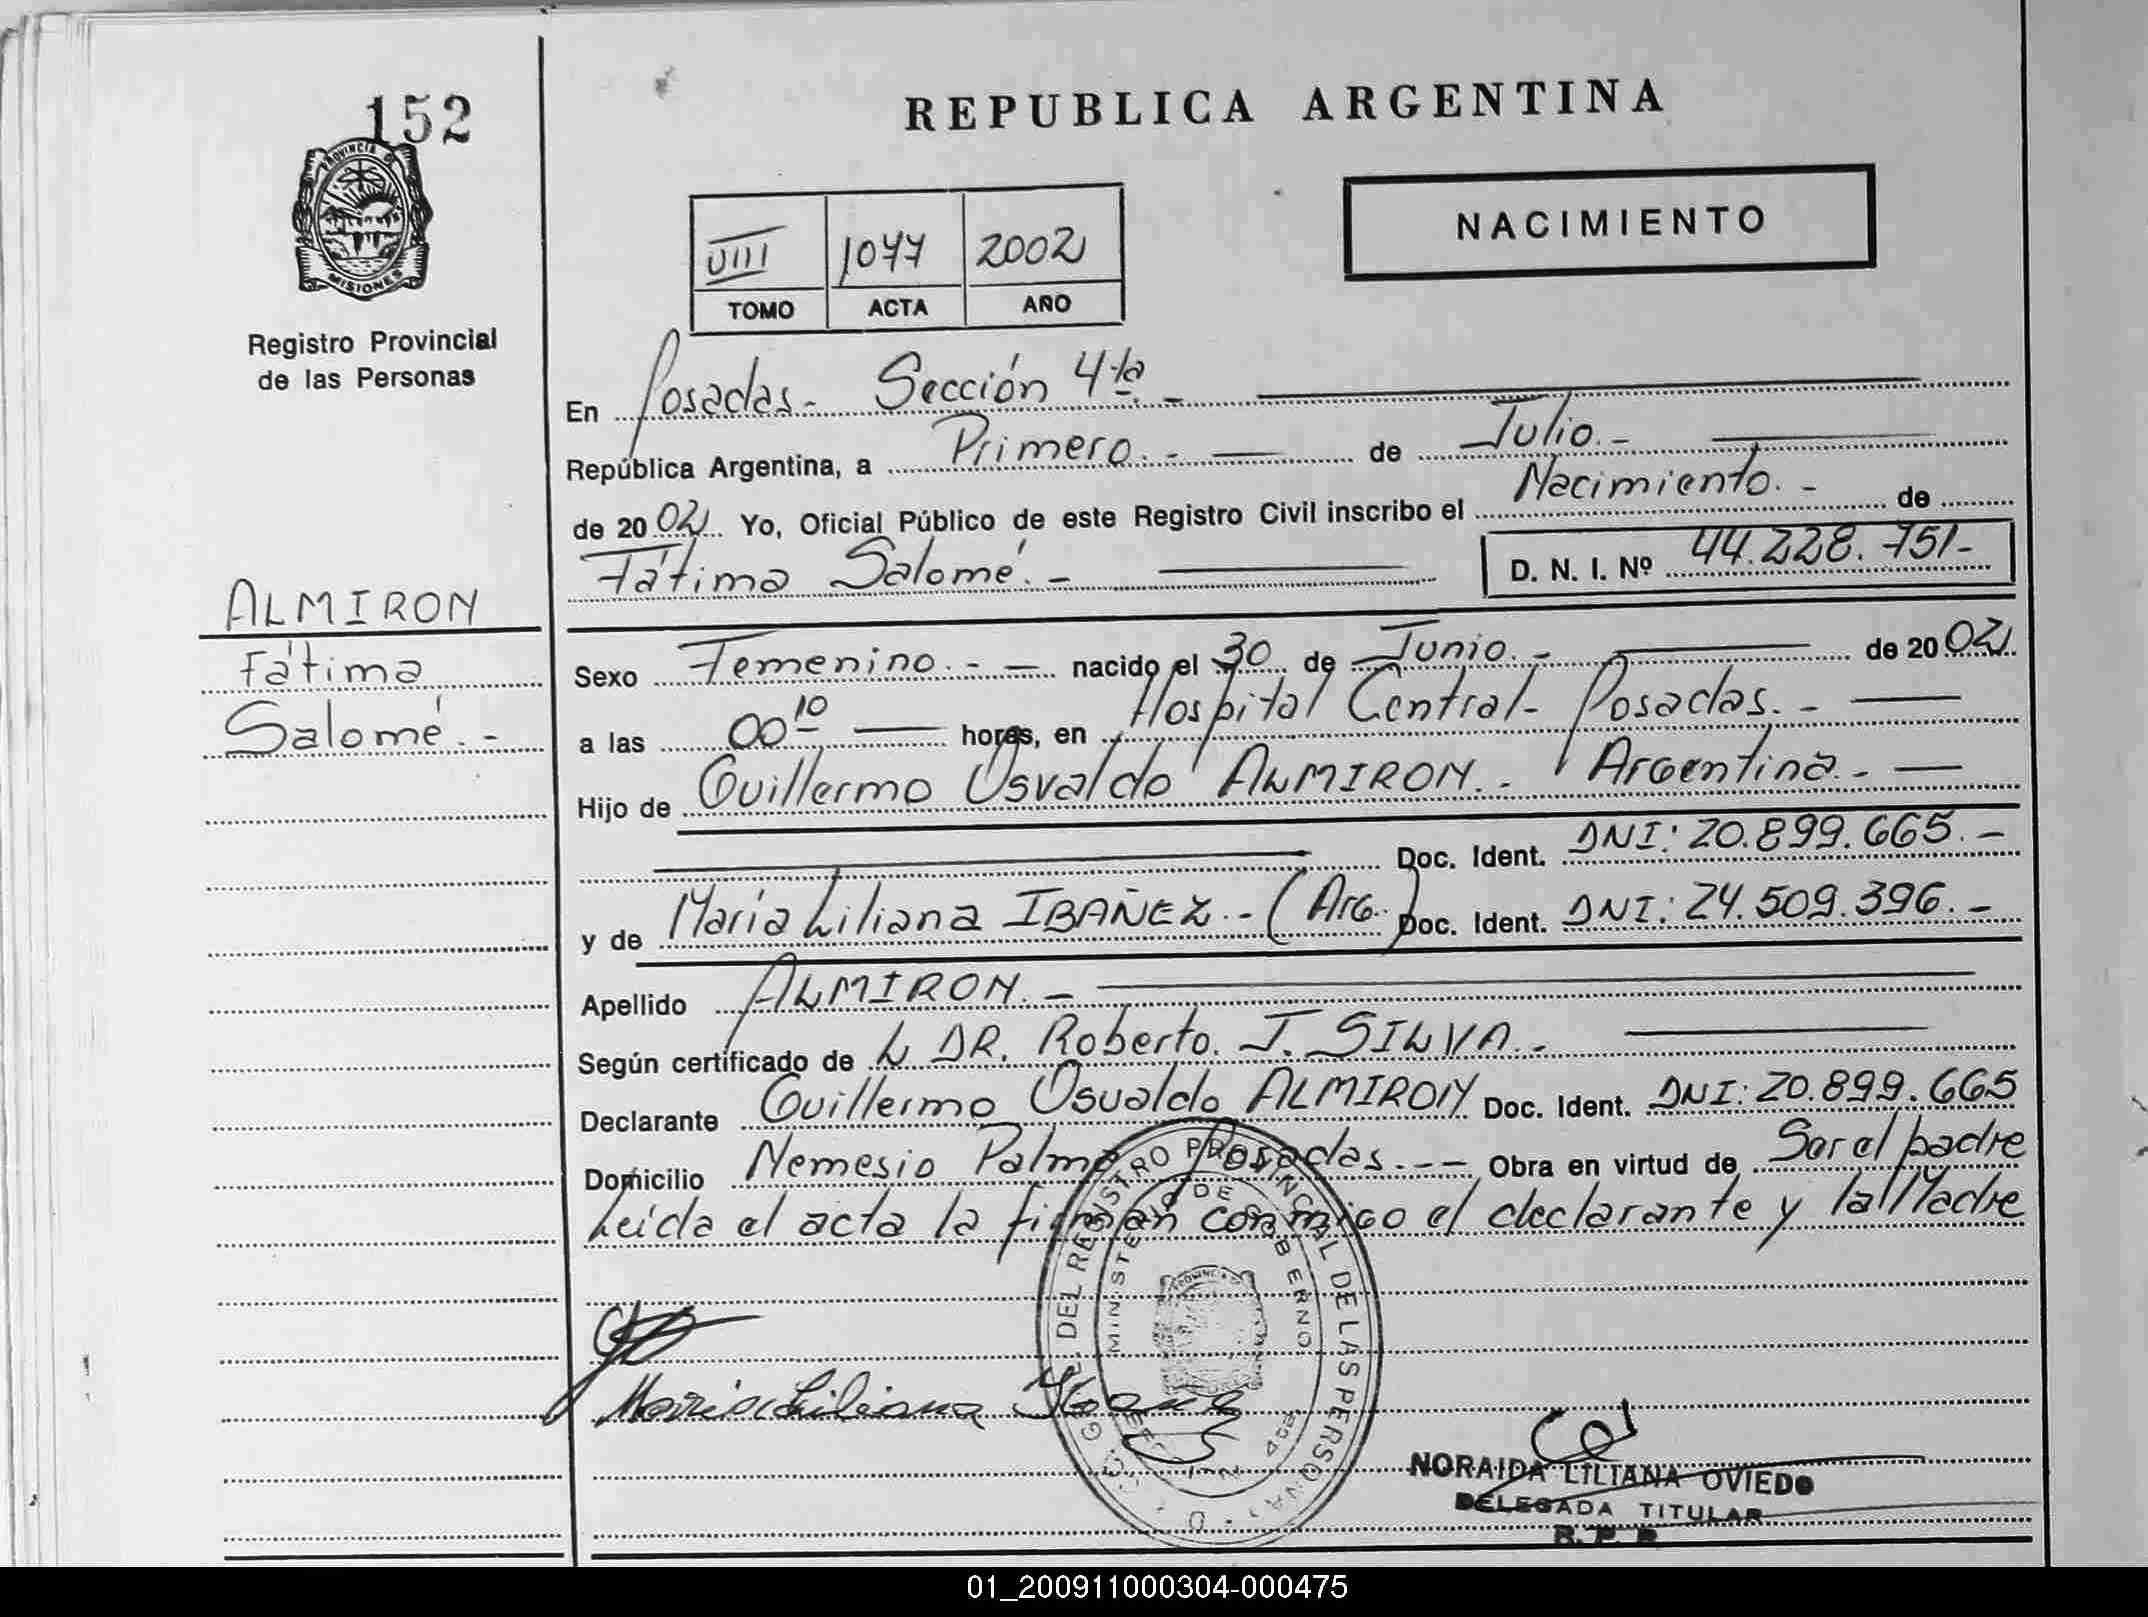 152
PROVINCIA DE
MISIONES
Registro Provincial
de las Personas
ALMIRON
Fátima
Salomé.-
REPUBLICA ARGENTINA
NACIMIENTO
VIII 1077 2002
TOMO ACTA AÑO
En Posadas- Sección 4ta.-
República Argentina, a Primero.- de Julio.-
de 2002 Yo, Oficial Público de este Registro Civil inscribo el Nacimiento.- de
Fátima Salomé.- D. N. I. Nº 44.228.751-
Sexo Femenino.- nacido el 30 de Junio.- de 2002
a las 00 10 horas, en Hospital Central- Posadas.-
Hijo de Guillermo Osvaldo ALMIRON.- Argentina.-
Doc. Ident. DNI: 20.899.665.-
y de María Liliana IBAÑEZ.- (Arg.) Doc. Ident. DNI: 24.509.396.-
Apellido ALMIRON.-
Según certificado de L DR. Roberto. J. SILVA.-
Declarante Guillermo Osvaldo ALMIRON Doc. Ident. DNI: 20.899.665
Domicilio Nemesio Palma Posadas.-- Obra en virtud de Ser el padre
Leída el acta la firman conmigo el declarante y la Madre
DEL REGISTRO PROVINCIAL DE LAS PERSONAS
MINISTERIO DE GOBIERNO
Maria Liliana Ibañez
NORAIDA LILIANA OVIEDO
DELEGADA TITULAR
R. P. P
01_200911000304-000475